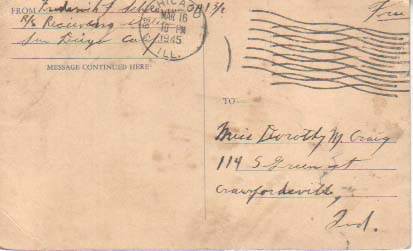 FROM Frederick J.
R/S Receiving
San Diego Cali
MESSAGE CONTINUED HERE
CHICAGO
MAR 16
PM
1945
ILL.
Free
TO
Miss Dorothy M. Craig
114 S Green st
Crawfordsville,
Ind.